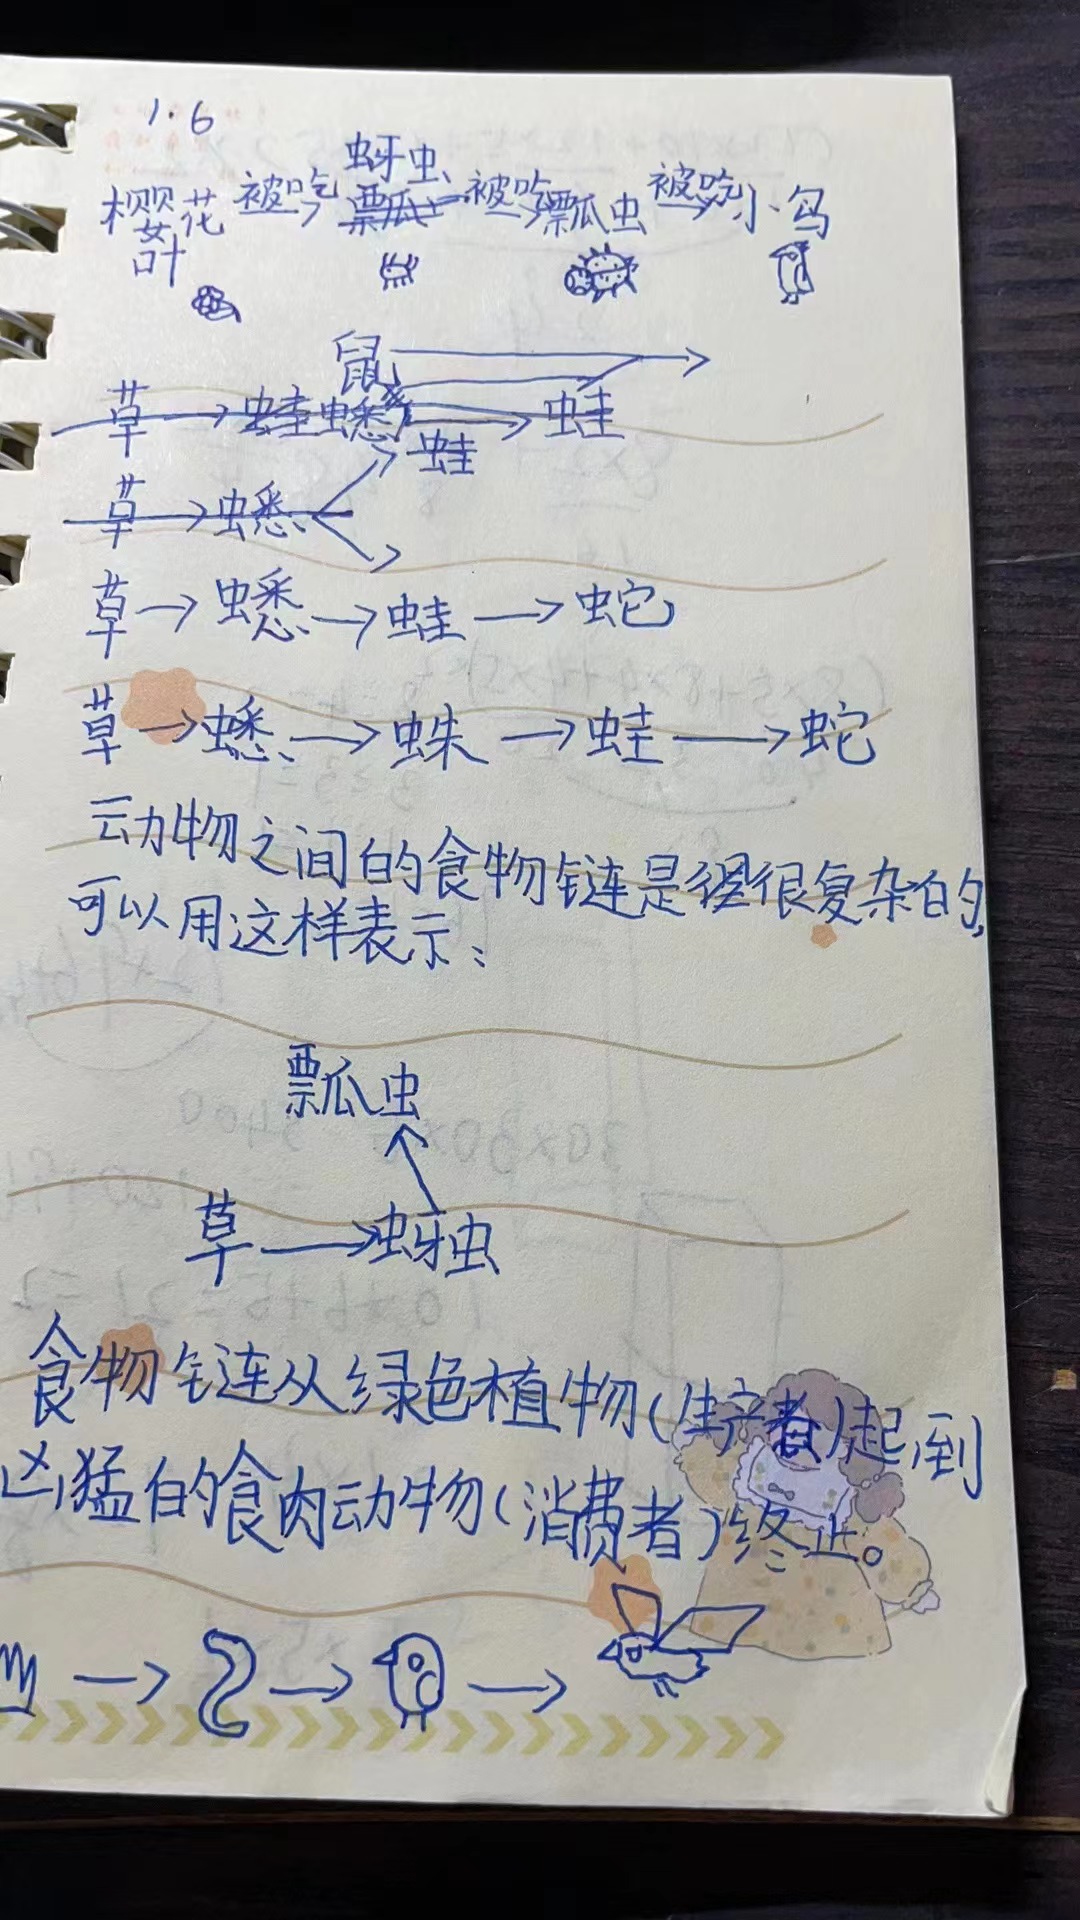 1.6
蚜虫
樱花 被吃 瓢瓜 被吃 瓢瓜虫 被吃 小鸟
叶
鼠
草 → 蛙 蟋 → 蛙
蛙
草 → 蟋
草 → 蟋 → 蛙 → 蛇
草 → 蟋 → 蛛 → 蛙 → 蛇
动物之间的食物链是很很复杂的,
可以用这样表示:
瓢瓜虫
草 → 蚜虫
食物链从绿色植物(生产者)起,到
凶猛的食肉动物(消费者)终止。